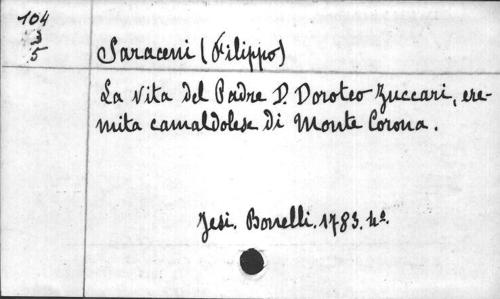 104
3
5
Saraceni (Filippo)
La vita del Padre D. Doroteo Zuccari, ere-
mita camaldolese di Monte Corona.
Jesi. Bonelli. 1783. 4º.